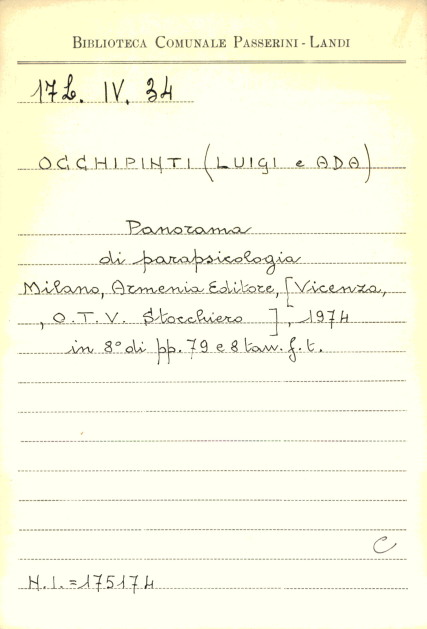 BIBLIOTECA COMUNALE PASSERINI - LANDI
17L. IV. 34
OCCHIPINTI (LUIGI e ADA)
Panorama
di parapsicologia
Milano, Armenia Editore, [Vicenza,
, O.T.V. Stocchiero], 1974
in 8° di pp. 79 e 8 tav. f. t.
C
N.I. = 175174